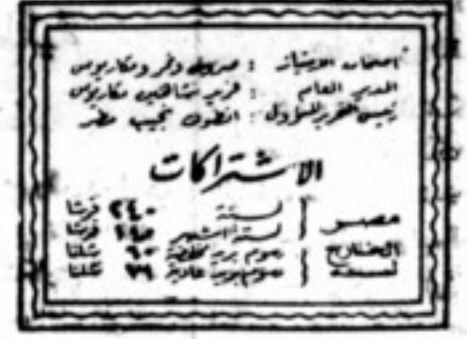 اصحاب الامتياز : صروف ونمر ومكاريوس
المدير العام : فريد شاهين مكاريوس
رئيس التحرير المسؤول : انطون نجيب مطر
الاشتراكات
مصر
لسنة ٢٤٠ قرشا
لستة اشهر ١٢٥ قرشا
الخارج
لسنة
رسوم بريد مخفضة ٦٠ شلنا
رسوم بريد عادية ٧٩ شلنا